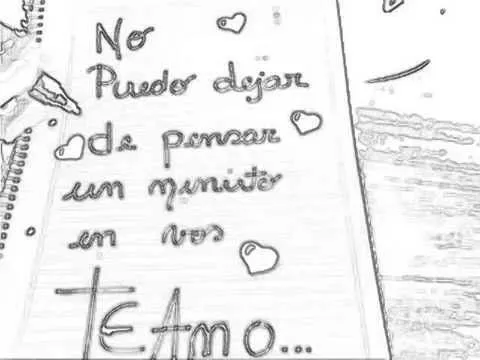 No
Puedo dejar
de pensar
un minuto
en vos
TE AMO...